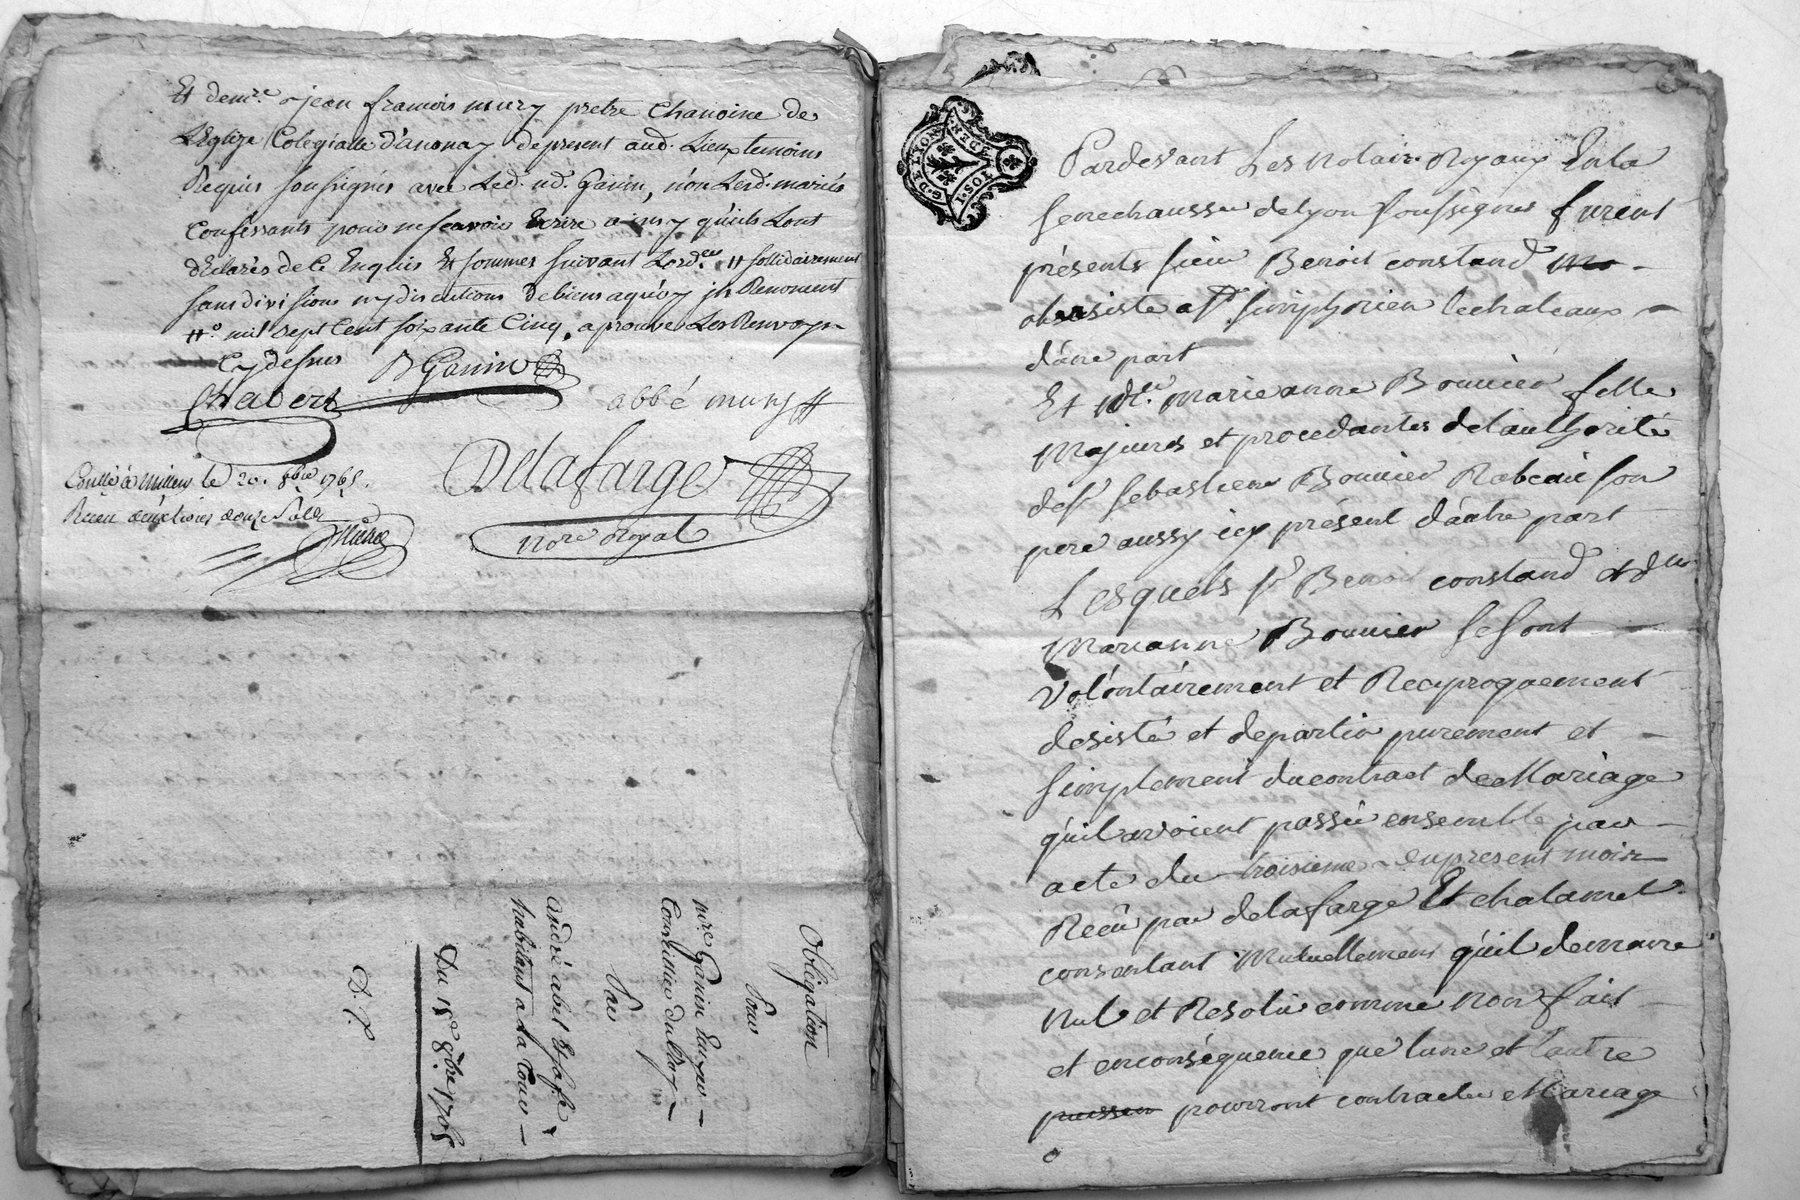 Et dem.re jean francois mury pretre Chanoine de
L'Eglize Colegialle d'anonay de present aud. Lieux temoins
Requis soussignés avec Led. nd. Ganin, non Lesd. mariés
Confessants pour ne scavoir Ecrire ainsy qu'ils L'ont
déClarés de Ce Enquis Et sommés suivant Lord.ce # sollidairement
sans division ny discutions de biens aquoy ils Renoncent
#° mil sept Cent soixante Cinq, aprouvés Les Renvoys
Cy dessus
B Ganin
Chabert
abbé mury
Delafarge
nore Royal
Conllé à le 20. 8bre 1765.
Receu douze sols
Obligation
Pour
mre Ganin Ecuyer
Conseiller du Roy
Par
André abel Et sa fe
habitant a La Tour
Du 15e 8bre 1765
D. P.
G. DE LYON
Pardevant Les Notair. Royaux En la
senechaussee de lyon soussignés furent
présents sieur Benoit constand mo
a st. simphorien le chateaux
dune part
Et dlle. marie anne Bonnier fille
Majeures et procedantes de l'authorité
de sr sebastien Bonnier son
pere aussy icy présent d'autre part
Lesquels sr Benoit constand et dlle
Marianne Bonnier se sont
volontairement et Reciproquement
desisté et departir purement et
simplement du contract de Mariage
quil avoient passée ensemble par
acte du troisieme du present mois
Receu par delafarge Et chalamel
consentant Mutuellement quil demeure
Nul et Resolu comme non fait
et en conséquence que lune et lautre
puissen pourront contracter Mariage